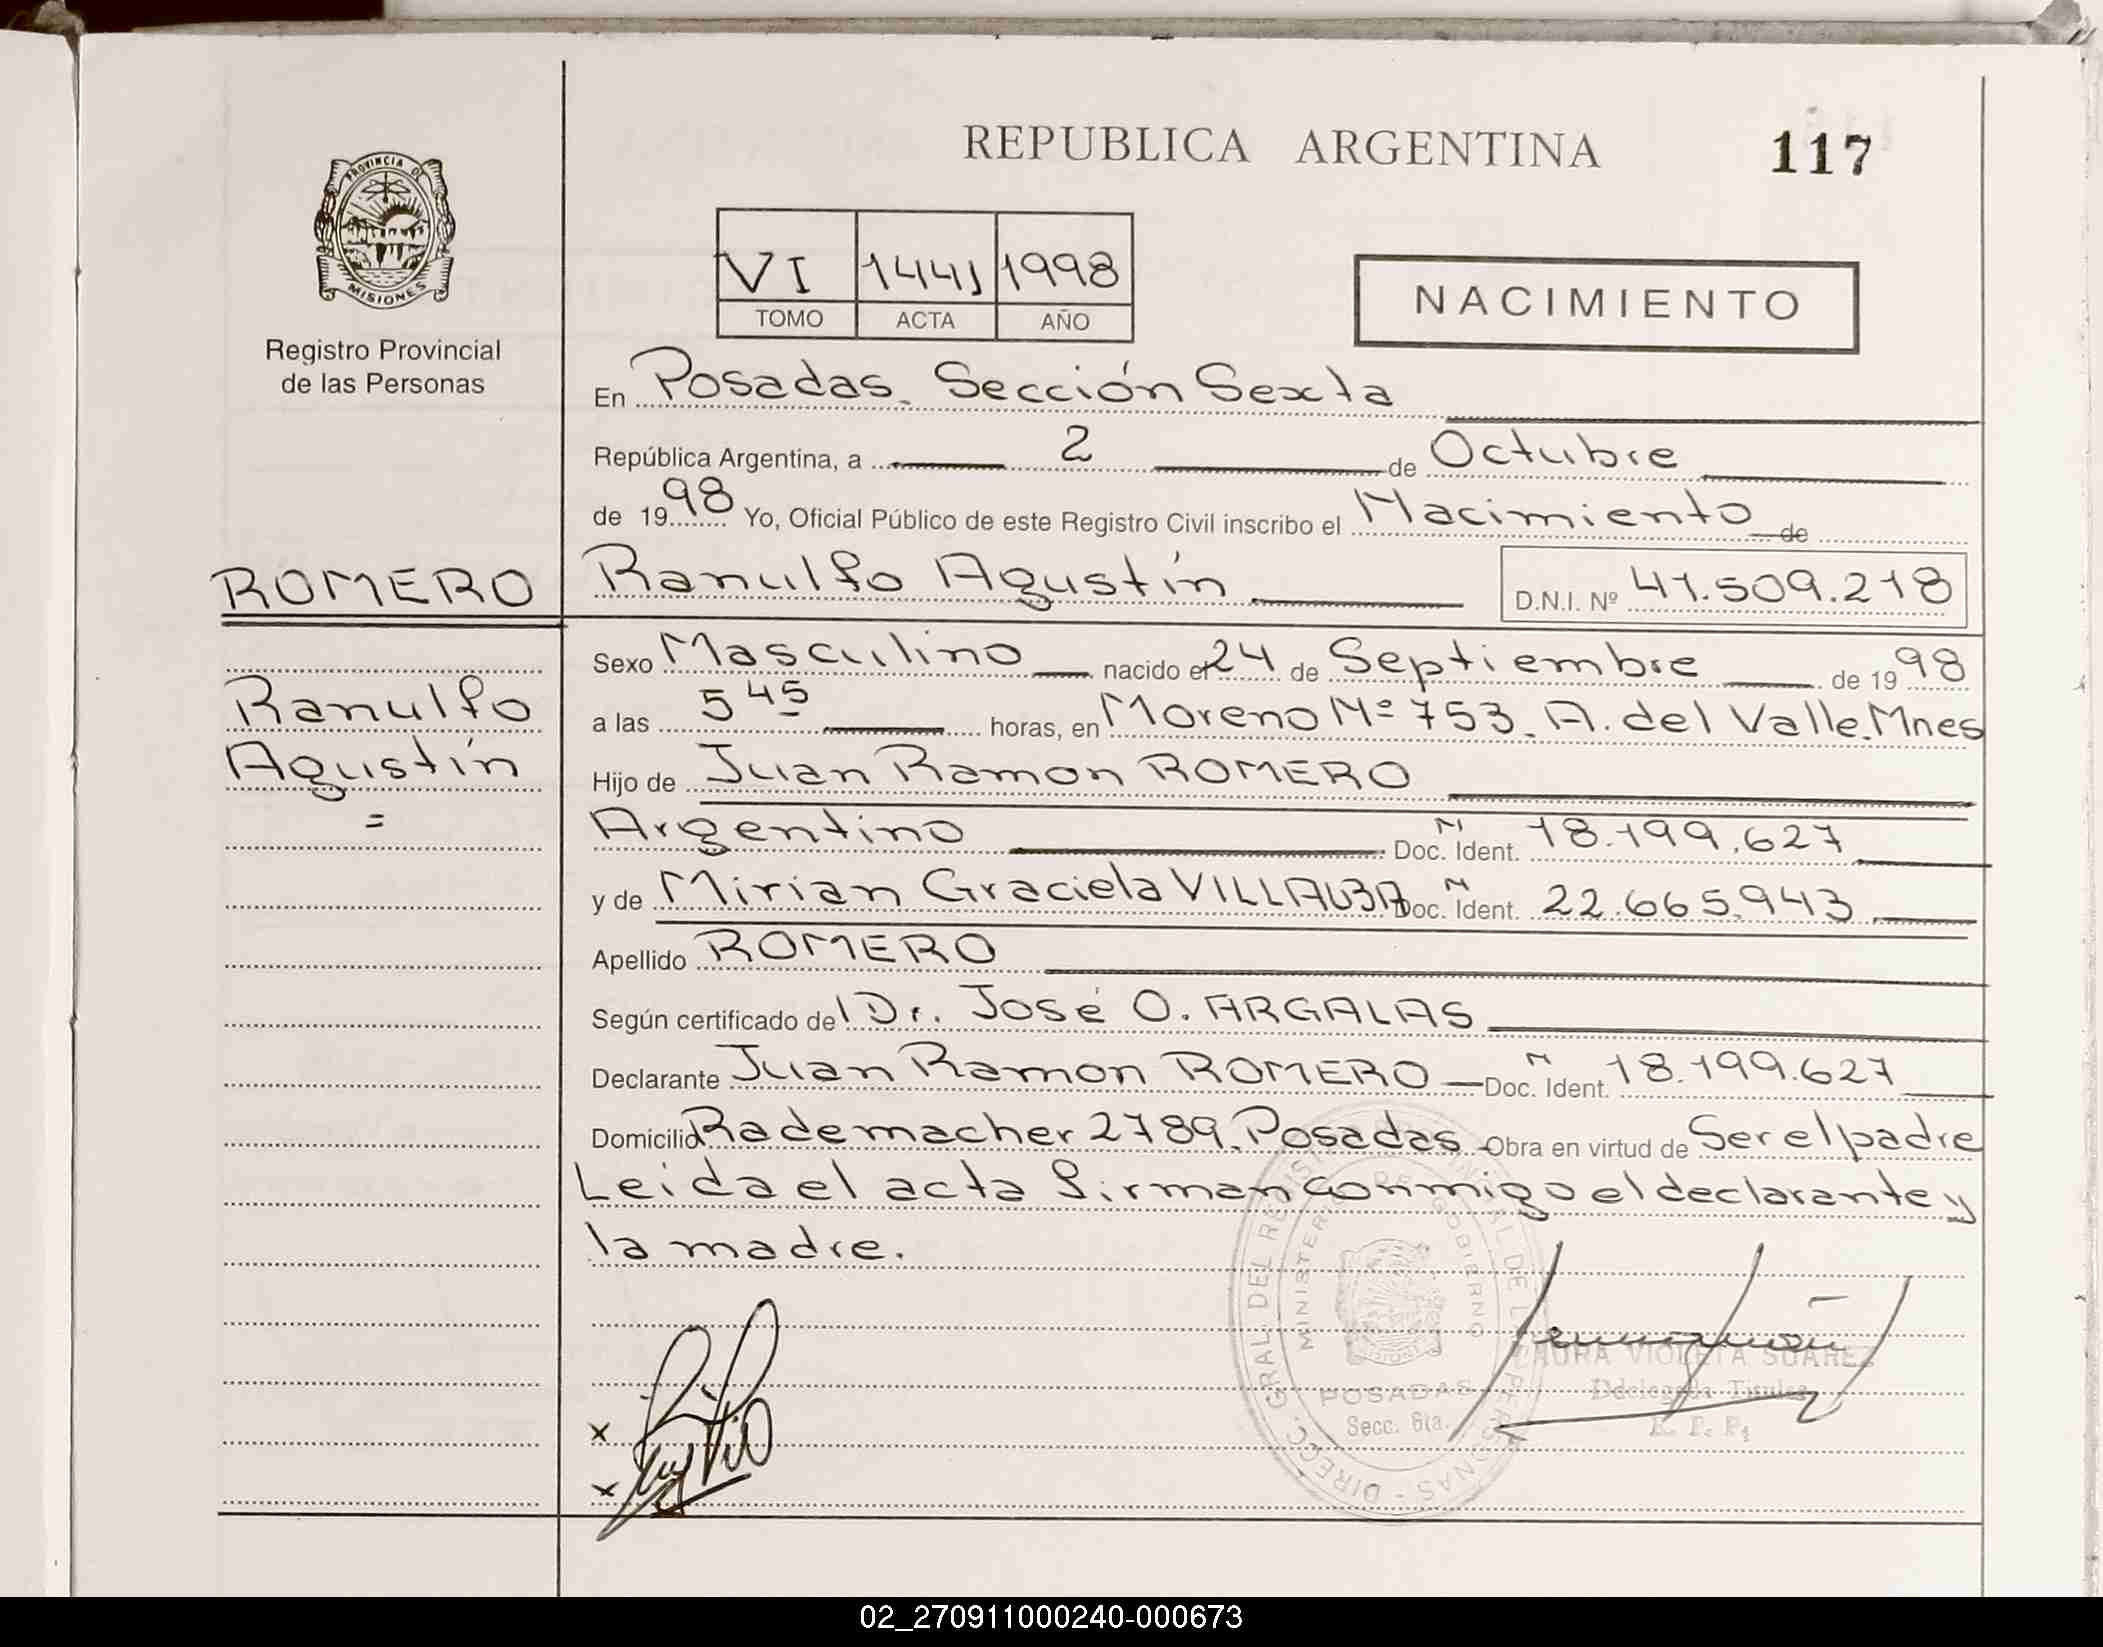 REPUBLICA ARGENTINA
117
PROVINCIA DE
MISIONES
Registro Provincial
de las Personas
VI 1998
TOMO ACTA AÑO
NACIMIENTO
En Posadas. Sección Sexta
República Argentina, a 2 de Octubre
de 1998 Yo, Oficial Público de este Registro Civil inscribo el Nacimiento de
ROMERO
Ranulfo Agustín D.N.I. Nº 41.509.218
Sexo Masculino nacido el 24 de Septiembre de 1998
Ranulfo
Agustín
=
a las 5 45 horas, en Moreno Nº 753. A. del Valle. Mnes
Hijo de Juan Ramon ROMERO
Argentino N Doc. Ident. 18.199.627
y de Mirian Graciela VILLALBA N Doc. Ident. 22.665.943
Apellido ROMERO
Según certificado del Dr. José O. ARGALAS
Declarante Juan Ramon ROMERO N Doc. Ident. 18.199.627
Domicilio Rademacher 2789. Posadas Obra en virtud de Ser el padre
Leida el acta firman conmigo el declarante y
la madre.
DIRECC. GRAL. DEL REGISTRO PROVINCIAL DE LAS PERSONAS -
MINISTERIO DE GOBIERNO
POSADAS
Secc. 6ta.
LAURA VIOLETA SUAREZ
Delegada Titular
R. P. P.
x
x
02_270911000240-000673